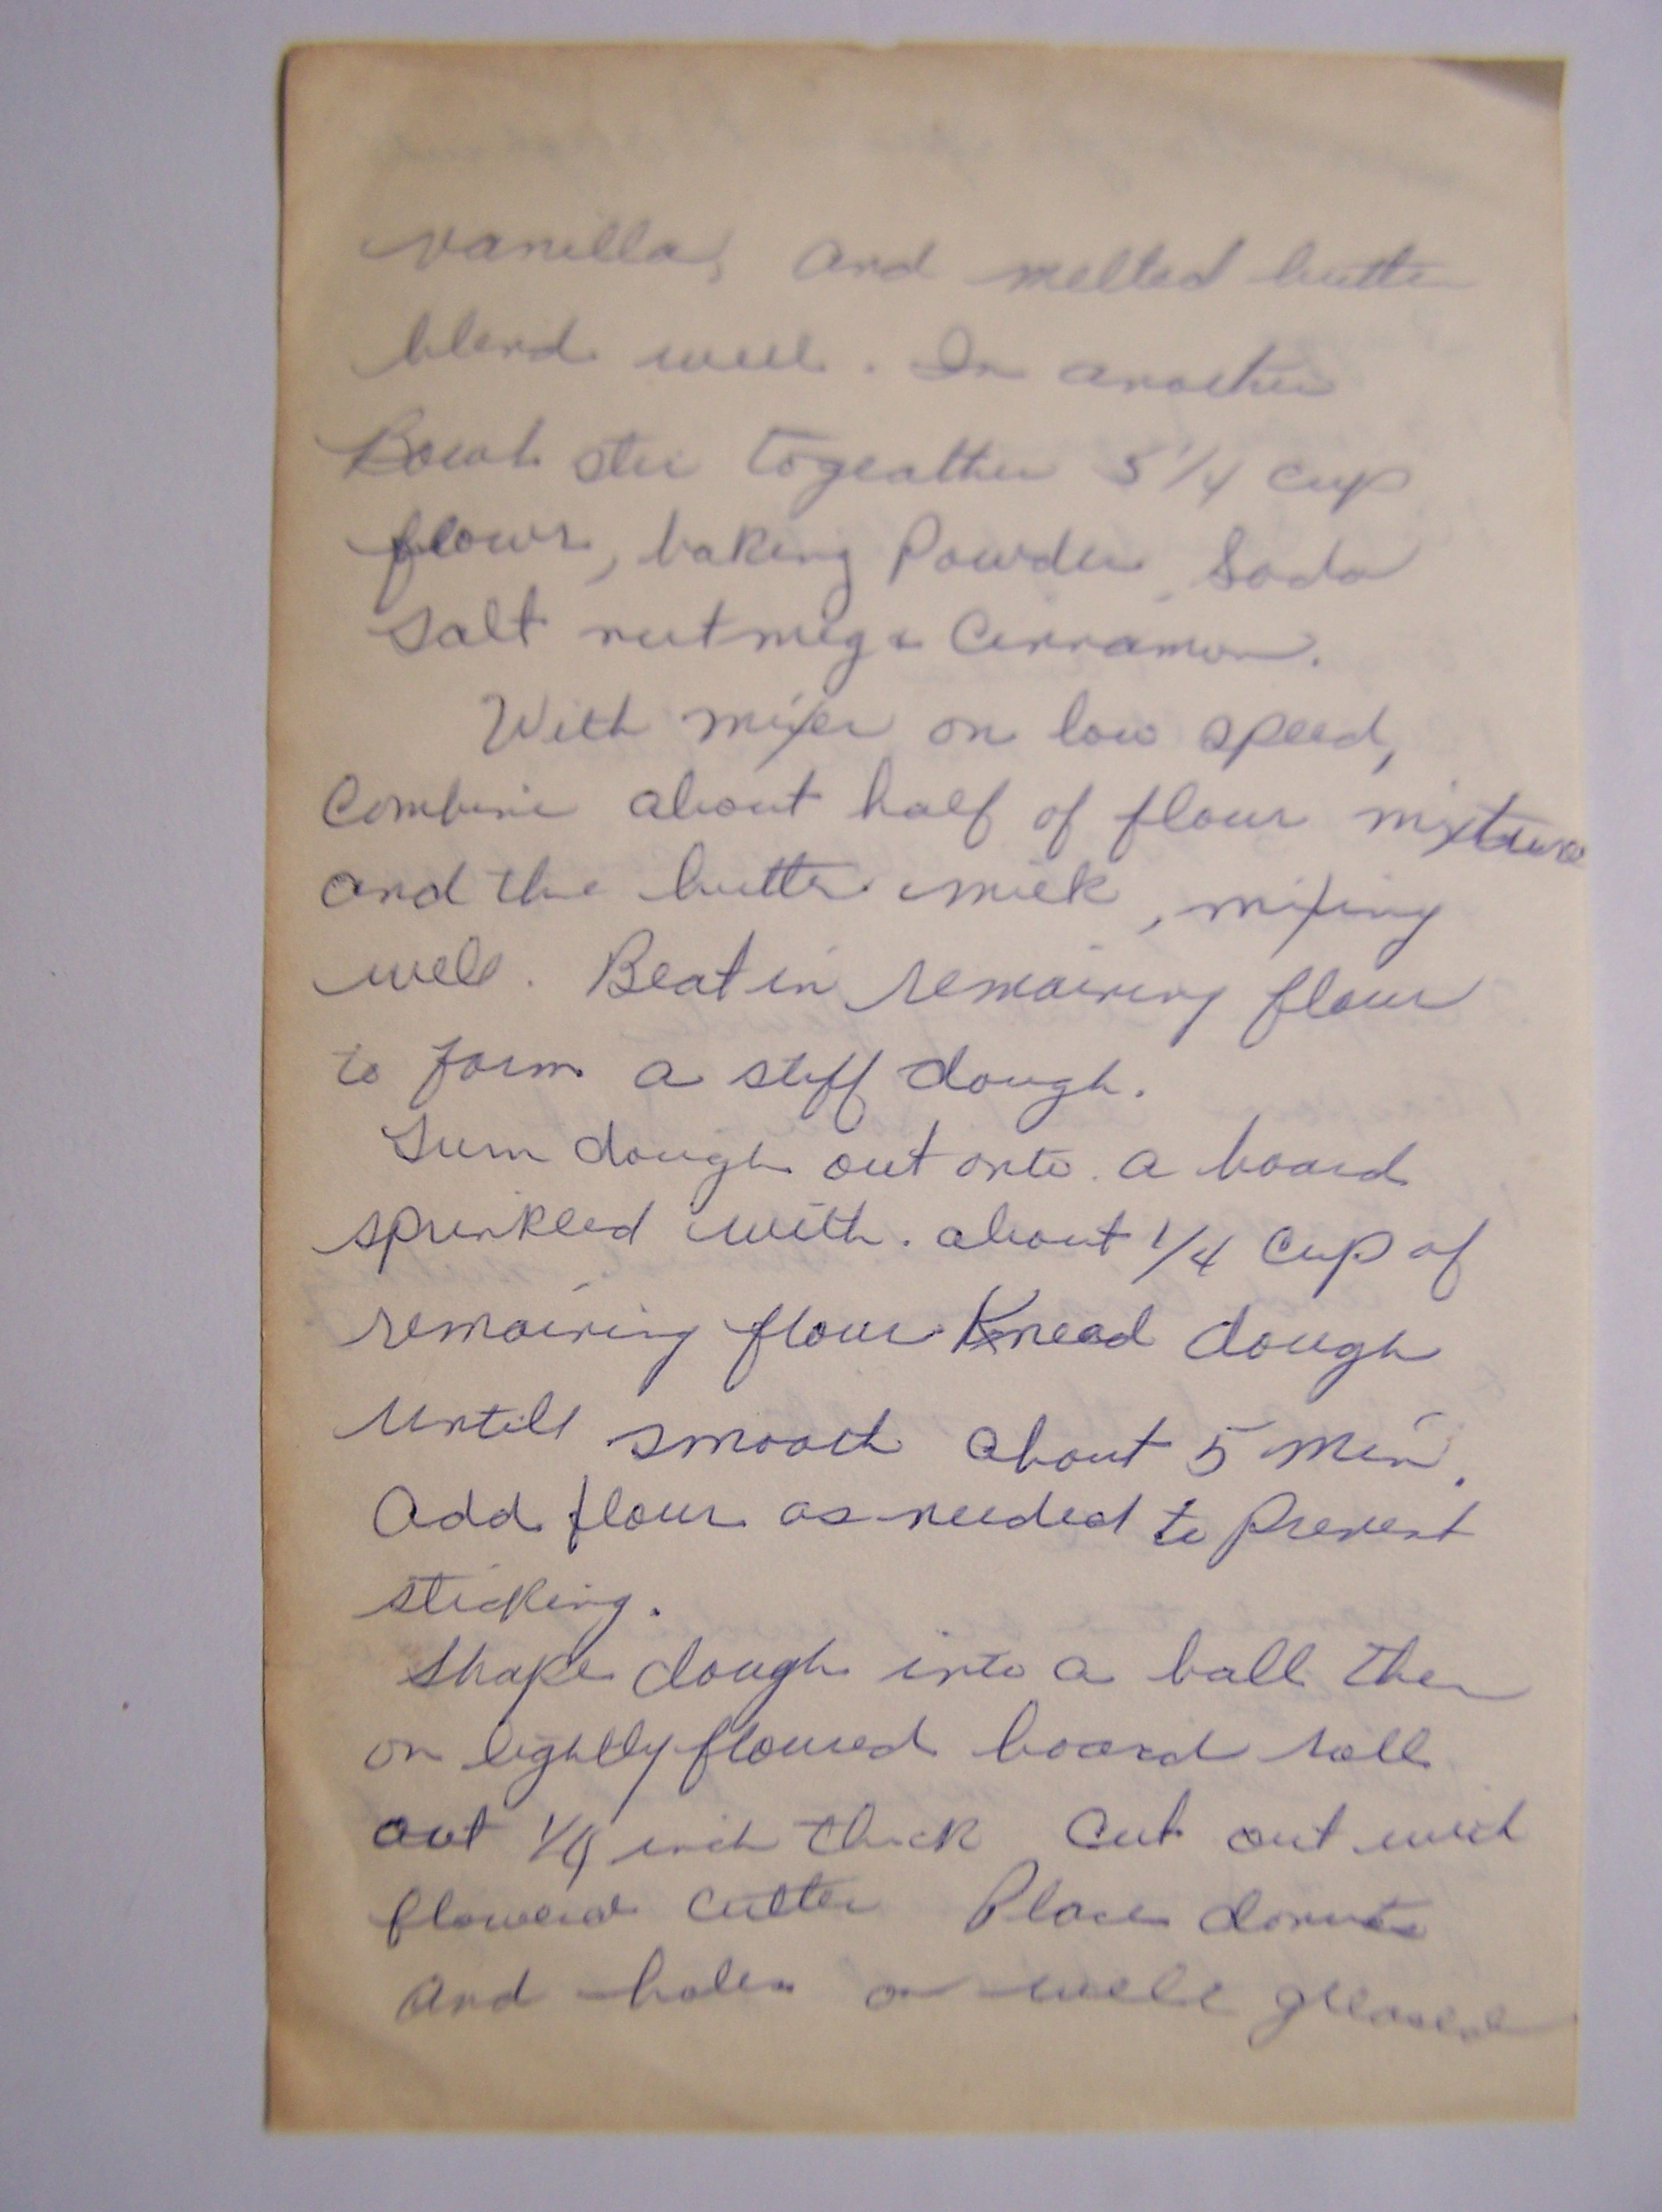 vanilla, and melted butter
blend well. In another
Bowl stir togeather 5 1/4 cup
flour, baking Powder, Soda
Salt nutmeg & Cinnamon.
With mixer on low speed,
Combine about half of flour mixture
and the butter milk, mixing
well. Beat in remaining flour
to form a stiff dough.
Turn dough out onto a board
sprinkled with about 1/4 cup of
remaining flour Knead dough
untill smooth about 5 min.
Add flour as needed to prevent
sticking.
Shape dough into a ball then
on lightly floured board roll
out inch thick Cut out with
flowered cutter Place donuts
and holes on well greased